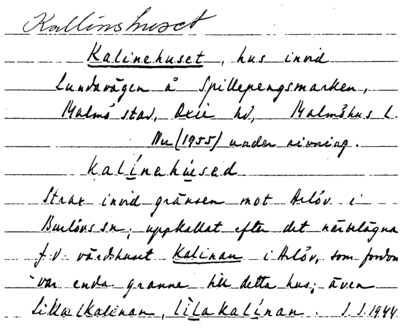 Kallinshuset
Kalinehuset, hus invid
Lundavägen å Spillepengsmarken,
Malmö stad, Oxie hd, Malmöhus l.
Nu (1955) under rivning.
kalínahúsed
Strax invid gränsen mot Arlöv i
Burlövs sn; uppkallat efter det närbelägna
f.d. värdshuset Kalinan i Arlöv, som fordom
var enda granne till detta hus; även
Lilla Kalinan, lílakalínan. I.I. 1944